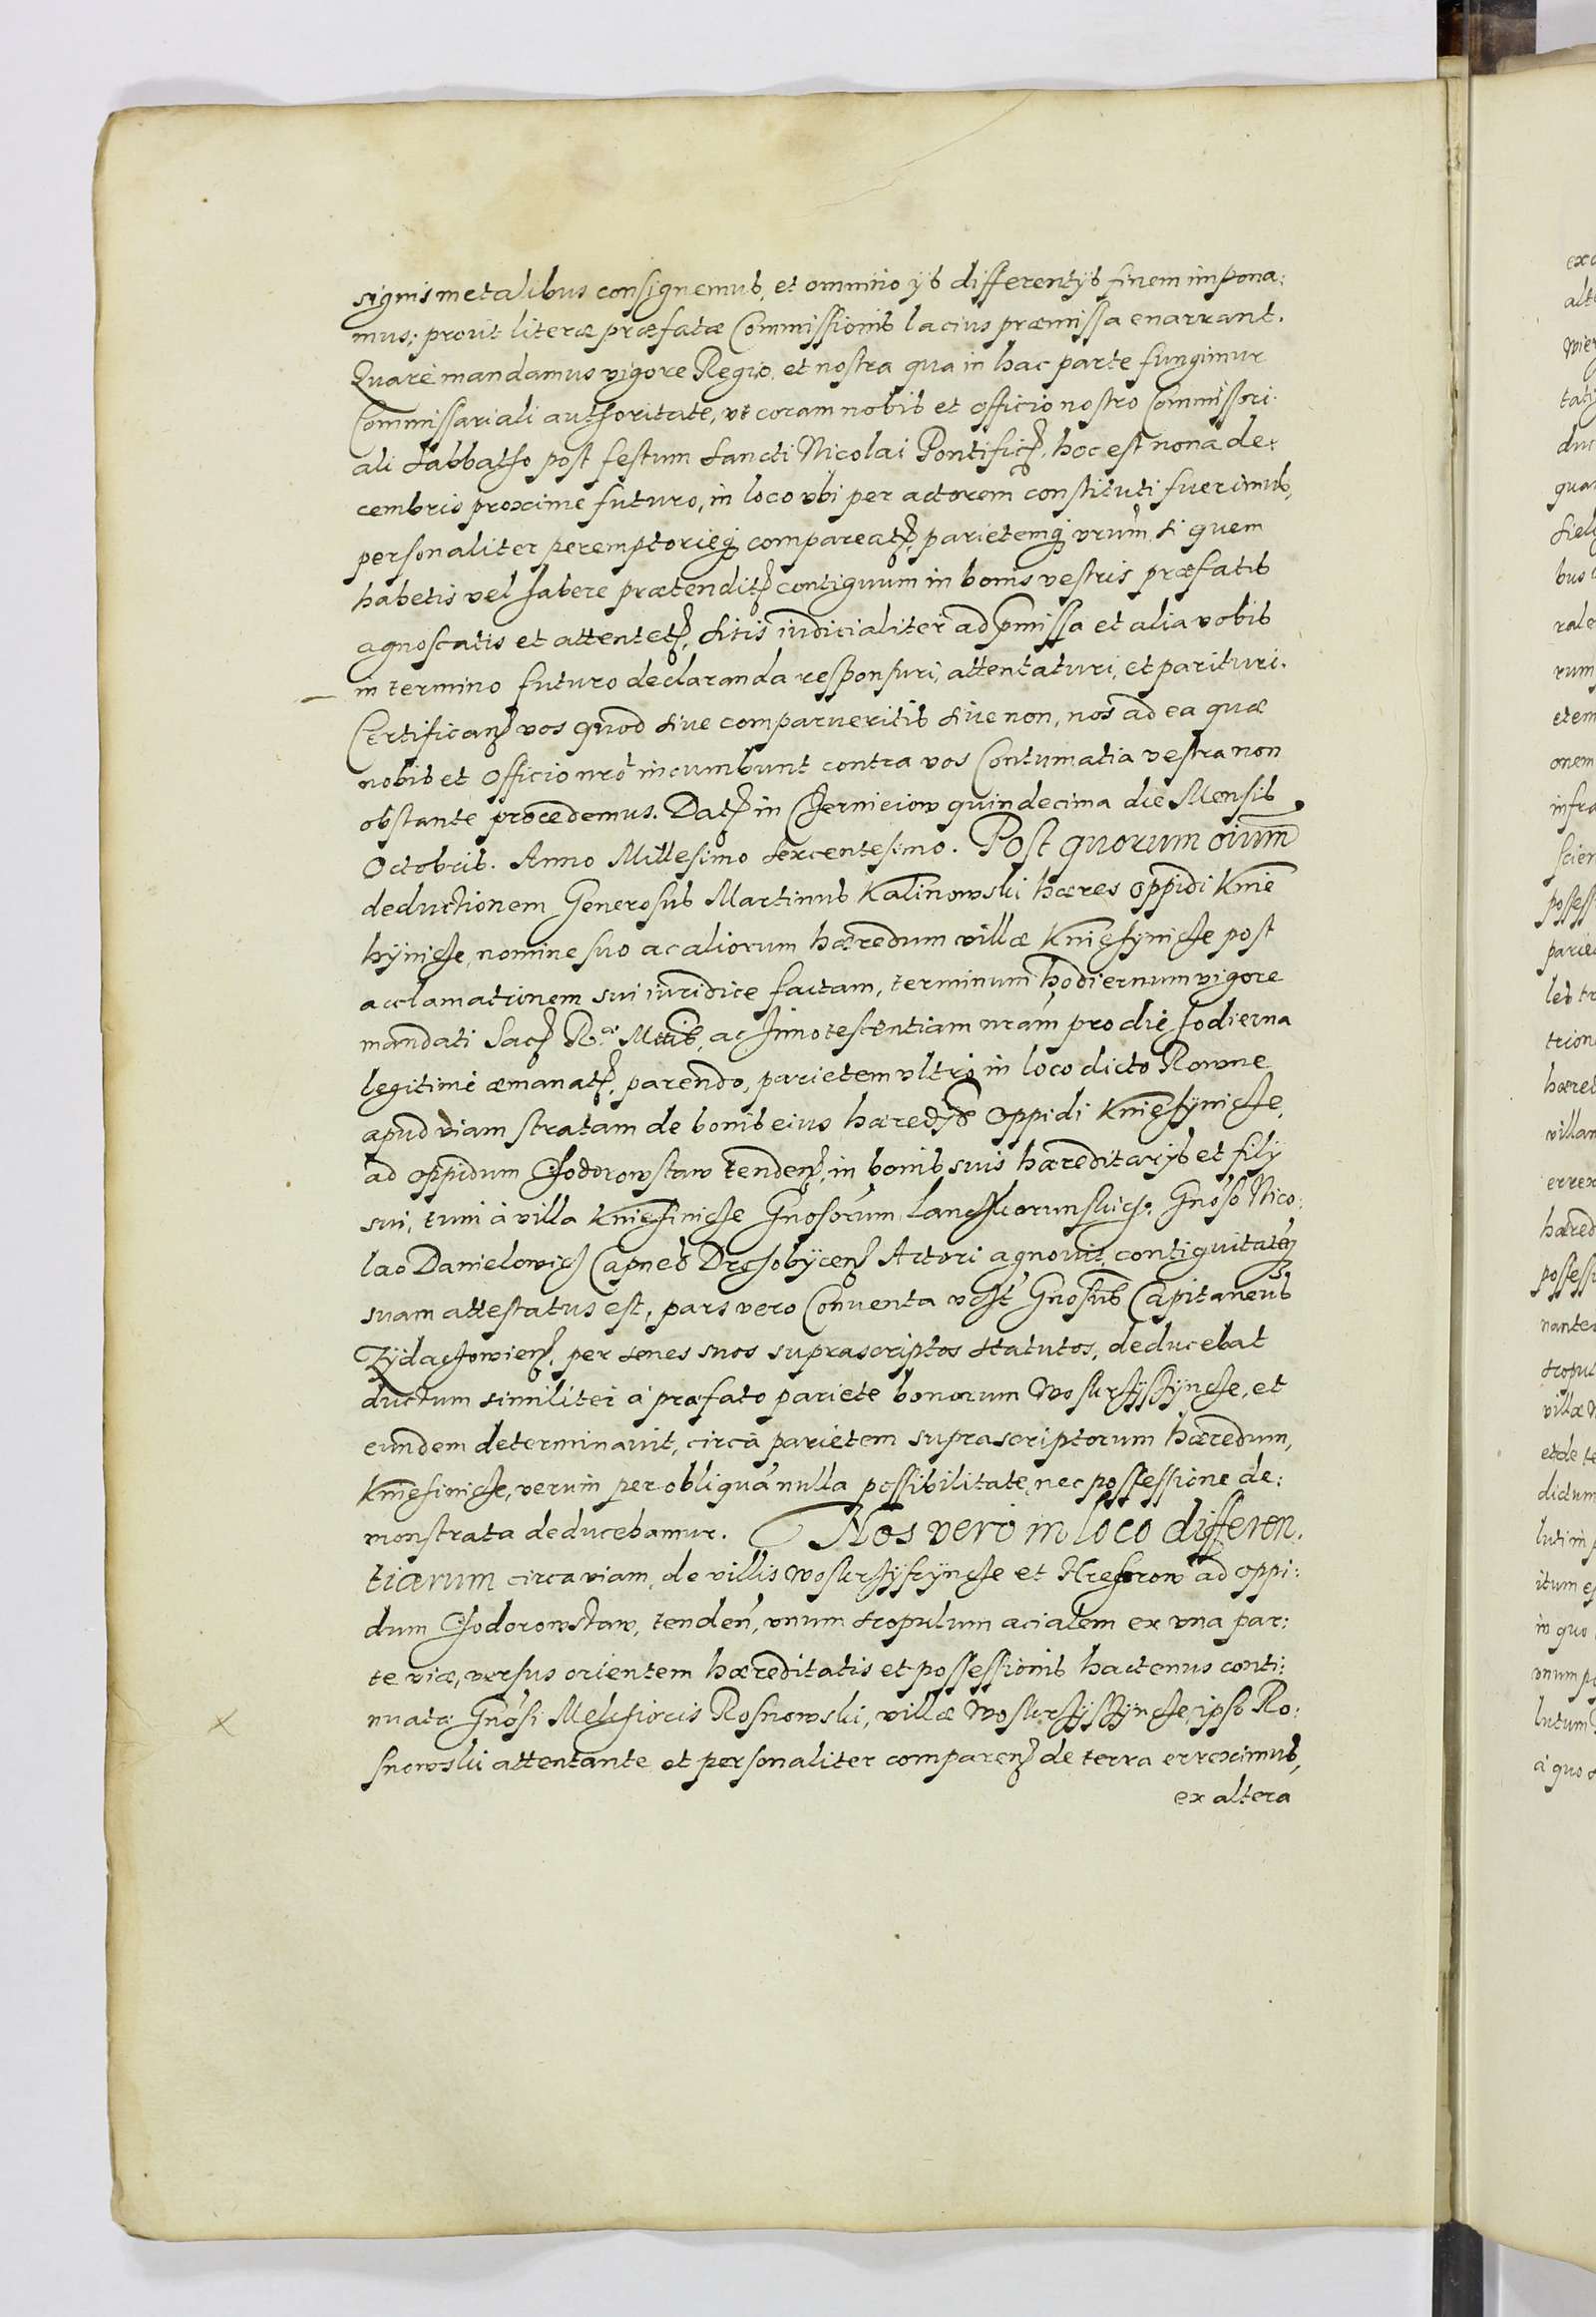 signis metalibus consignemus, et omnino ÿs differentÿs finem impona:
mus: prout literæ præfatæ Commissionis lacius præmissa enarrant.
Quare mandamus vigore Regio, et nostra qua in hac parte fungimur
Commissariali authoritate, vt coram nobis et officio nostro Commissori
ali Sabbatho post festum Sancti Nicolai Pontificȝ, hoc est nona de:
cembris proxime futuro, in loco vbi per actorem constituti fuerimus,
personaliter peremptorieqȝ compareatȝ, parietemqȝ vrum̃ si quem
habetis vel habere prætenditȝ contiguum in bonis vestris præfatis
agnoscatis et attentetȝ, sitis iudicialiter ad p̃missa et alia vobis
in termino futuro declaranda responsuri, attentaturi, et parituri.
Certificanȝ vos quod siue comparueritis siue non, nos ad ea quæ
nobis et officio nr̃o incumbunt contra vos Contumatia vestra non
obstante procedemus. Datȝ in Czernieiow quindecima die Mensis
Octobris. Anno Millesimo sexcentesimo. Post quorum oium̃
deductionem Generosus Martinus Kalinowski hæres oppidi Knie
hÿnicze, nomine suo ac aliorum hæredum villæ Kniehÿnicze post
acclamationem sui iuridice factam, terminum hodiernum vigore
mandati Sacȝ R. Mttis, ac Innotescentiam nram̃ pro die hodierna
legitime æmanatȝ, parendo, parietem vltro in loco dicto Rowne
apud viam stratam de bonis eius hæredÿs oppidi Kniehÿnicze,
ad oppidum Chodorowstaw tendenȝ, in bonis suis hæreditarÿs et filÿ
sui, tum à villa Kniehinicze Gnosorum Gnoso Nico:
lao Danielowicz Capneo Drohobÿcenȝ Actori agnouit, contiguitatem
suam attestatus est, pars vero Conuenta vcȝt Gnosus Capitaneus
Zÿdaczowienȝ, per senes suos suprascriptos statutos, deducebat
ductum similiter à præfato pariete bonorum Woskrzÿszÿncze, et
eundem determinauit, circa parietem suprascriptorum hæredum,
Kniehinicze, verum per obliqua nulla possibilitate, nec possessione de:
monstrata deducebamur. Nos vero in loco differen:
tiarum circa viam, de villis Woskrzÿszÿncze et Hrehorow ad oppi:
dum Chodorowstaw, tendeñ, vnum scopulum acialem ex vna par:
te viæ, versus orientem hæreditatis et possessionis hactenus conti:
nuatæ Gnosi Melchioris Rosnowski, villæ Woskrzÿszÿncze, ipso Ro:
snowski attentante et personaliter comparenȝ de terra erreximus,
ex altera